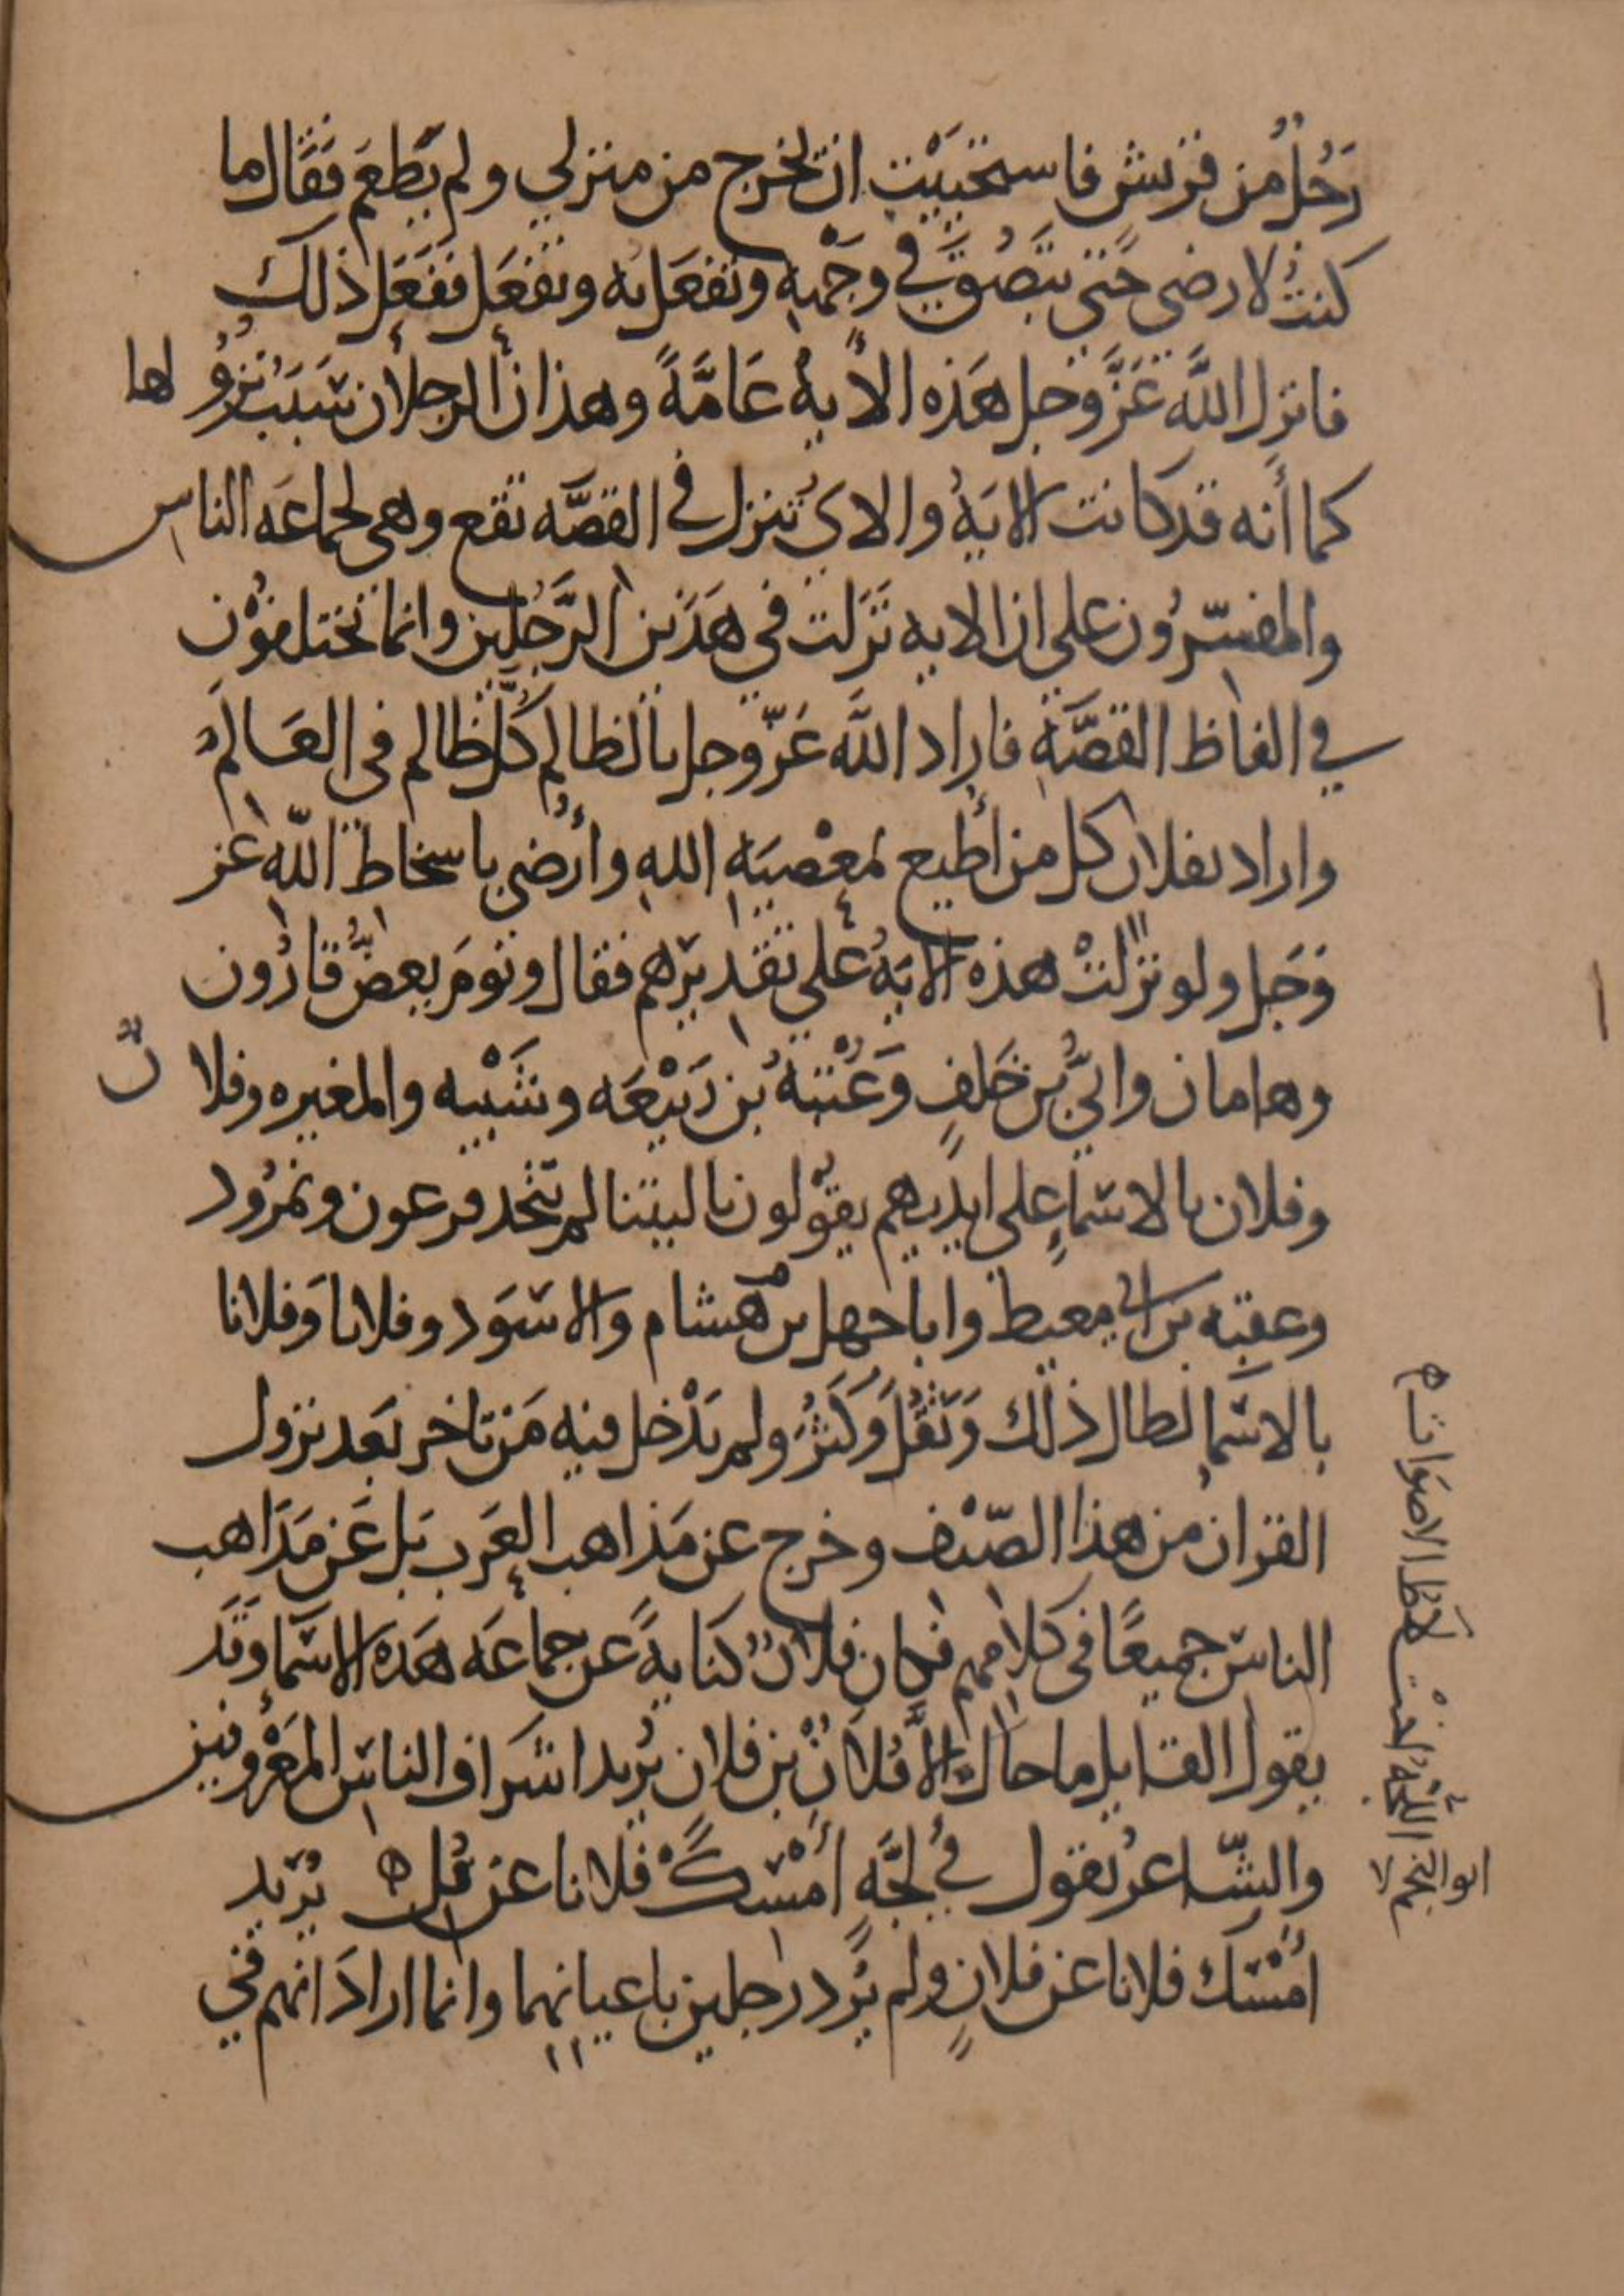 رَجُلٌ من قريش فاستحيَيْت ان يخرج من منزلي ولم يَطعَم فقال ما
كنتُ لارضى حَتى تبصُق في وجْهِه وتفعَل به وتفعَل ففعَل ذلك
فانزل اللَّه عَزَّ وجل هَذه الأية عَامَّةً وهذان الرجلان سَبَبُ نزوُ لها
كما أنه قد كانت الايَةُ والاي تنزل في القصَّه تقع وهي لجماعَه الناس
والمفسّرُون على ان الايه نَزَلت في هَذين الرَّجُلين وانما تختلفوْن
في الفاظ القصَّةِ فاراد اللَّه عَزّ وجل بالظالم كُلَّ ظالم في العَالَم
واراد بفلان كل من أُطيع بمعْصيَهِ اللهِ وأُرْضى باسخاط اللّهِ عز
وَجَل ولو نزلتْ هذه الايَةُ على تقديرهم فقال ويَومَ يعضُّ قارُون
وهامان وابيُّ بن خَلفٍ وَعُتْبَةُ بن رَبيْعَه وشَيْبه والمغيره وفلا نٌ
وفلان بالاسماءِ على ايديهم يقوْلون ياليتنا لم نتخذ فرعون ونمرُود
وعقبه بن ابي معيط وابا جهل بن هشام والاسَود وفلانا وَفلانا
بالاسما لطال ذلك وَثَقُلَ وَكثرُ ولم يَدْخل فيه مَن تاخر بَعد نزول
القران من هذا الصّنْف وخرج عن مَذاهب العَرب بَل عَن مَذَاهب
الناس جميعًا في كلامهم فكان فلانٌ كنايةً عن جماعَه هَذه الاسَما وقَد
يقول القايل ما جاك الَّا فُلانُ بْن فلان يُريد اشرَاف الناس المعَرُوفين
والشّاعرُ يقول في لجَّهٍ أمْسِكْ فلانا عن فُلِ ه يُريد
امْسَك فلانا عن فلانٍ ولم يُرد رجلين باعيانهما وانما ارادَ انهم في
ابو النجم لا
اللَّجَّةُ لخْتلاطُ الاصوات م